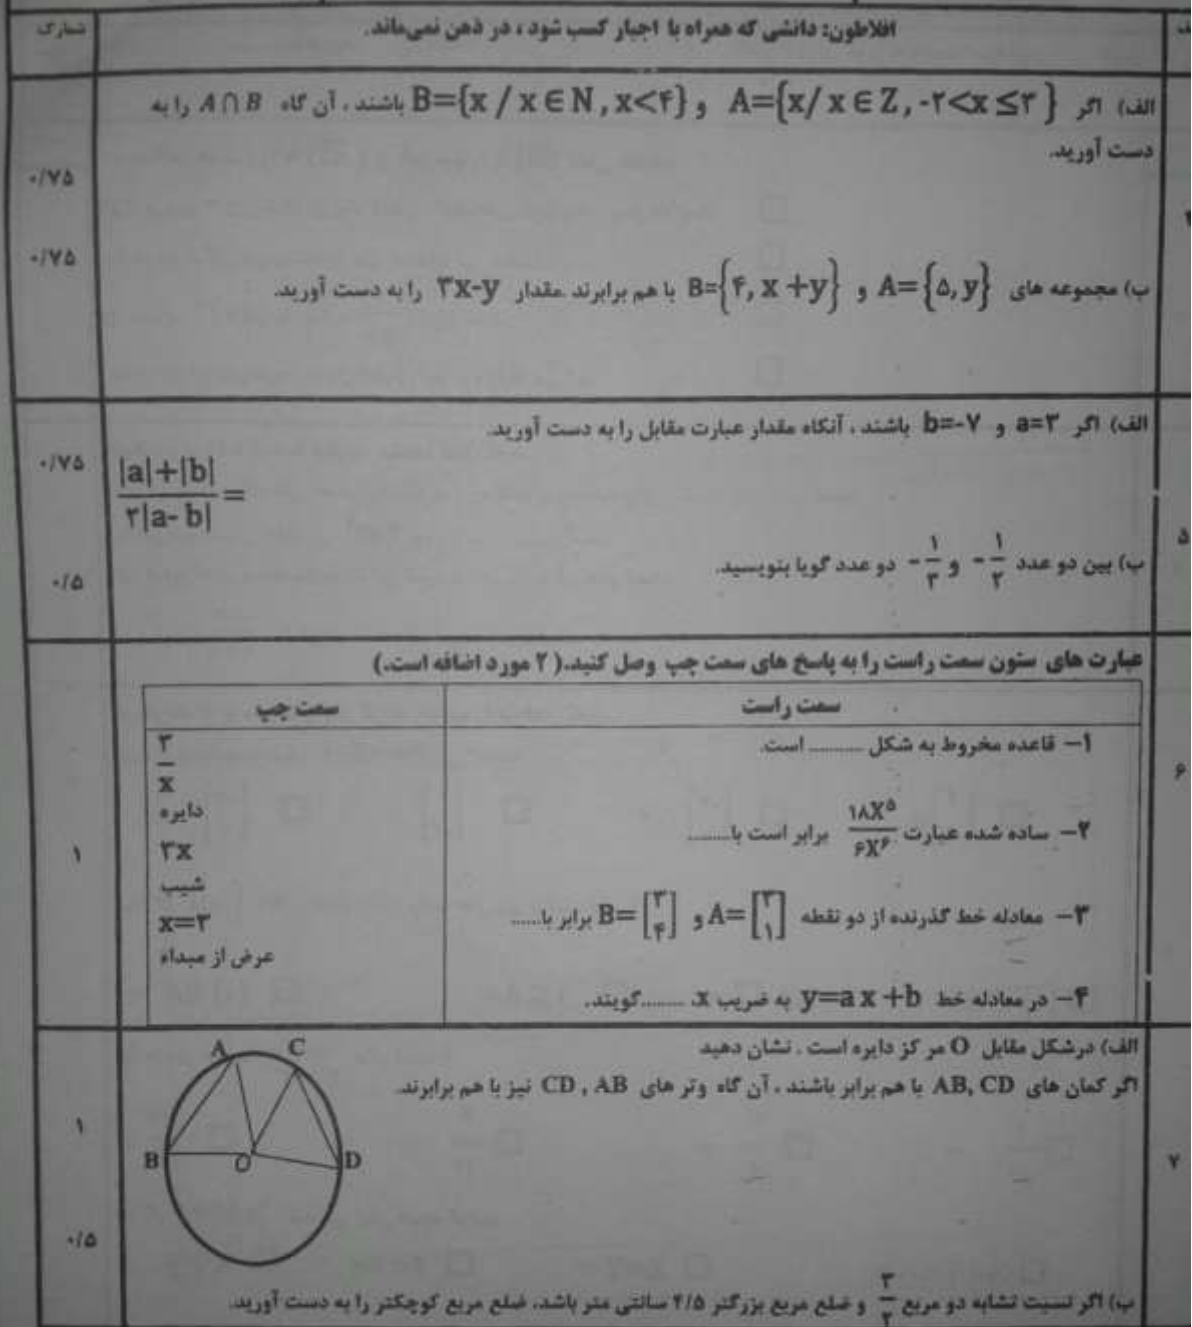 افلاطون: دانشی که همراه با اجبار کسب شود ، در ذهن نمی‌ماند.
الف) اگر A={x/ x∈Z, -۲<x≤۳ } و B={x / x∈N , x<۴} باشند ، آن گاه A∩B را به
دست آورید.
۰/۷۵
ب) مجموعه های A={۵, y} و B={۴, x+y} با هم برابرند .مقدار ۳x-y را به دست آورید.
۰/۷۵
۵
الف) اگر a=۳ و b=-۷ باشند ، آنگاه مقدار عبارت مقابل را به دست آورید.
|a|+|b| / ۲|a-b| =
۰/۷۵
ب) بین دو عدد -۱/۲ و -۱/۳ دو عدد گویا بنویسید.
۰/۵
۶
عبارت های ستون سمت راست را به پاسخ های سمت چپ وصل کنید.( ۲ مورد اضافه است.)
۱
سمت راست
۱– قاعده مخروط به شکل .......... است.
۲– ساده شده عبارت ۱۸X⁵/۶X⁶ برابر است با........
۳– معادله خط گذرنده از دو نقطه A=[۳ ۱] و B=[۳ ۴] برابر با......
۴– در معادله خط y=ax+b به ضریب x، ........گویند.
سمت چپ
۳/x
دایره
۳x
شیب
x=۳
عرض از مبداء
۱
۷
الف) درشکل مقابل O مرکز دایره است . نشان دهید
اگر کمان های AB, CD با هم برابر باشند ، آن گاه وتر های CD , AB نیز با هم برابرند.
۱
A
C
B
O
D
ب) اگر نسبت تشابه دو مربع ۳/۲ و ضلع مربع بزرگتر ۴/۵ سانتی متر باشد، ضلع مربع کوچکتر را به دست آورید.
۰/۵